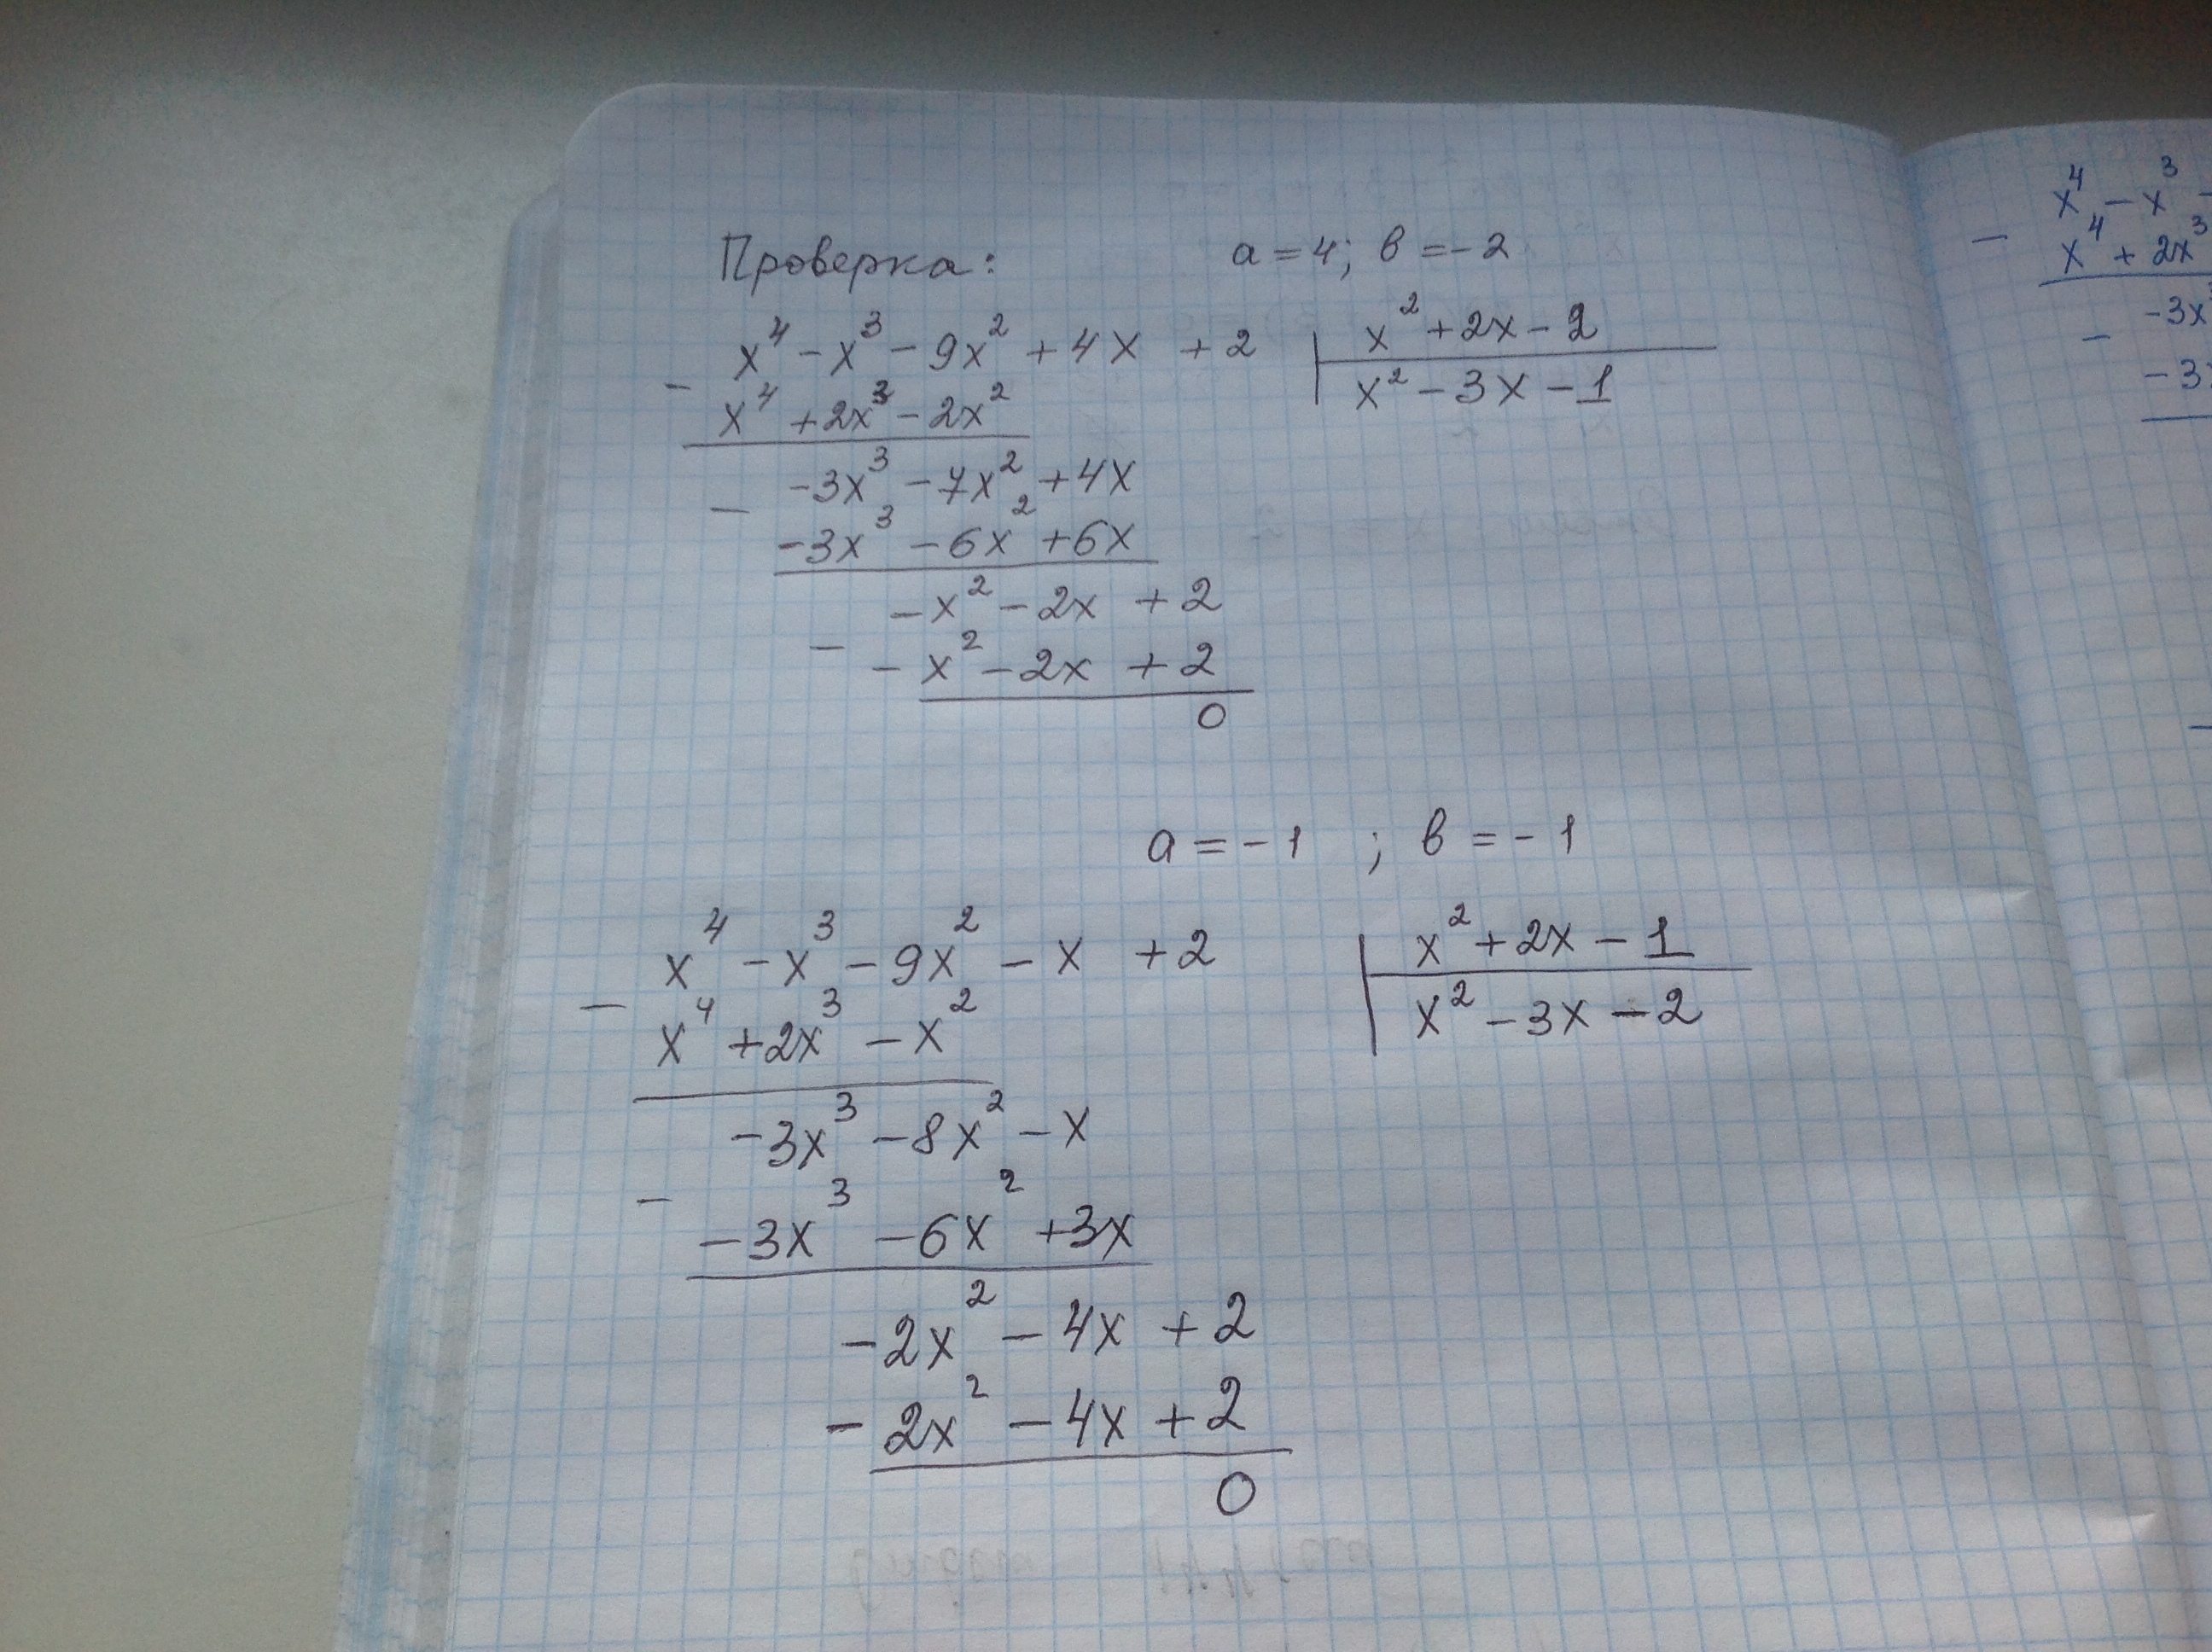 Проверка: a = 4; в = -2
x⁴ - x³ - 9x² + 4x + 2 | x² + 2x - 2
- x⁴ + 2x³ - 2x² | x² - 3x - 1
-3x³ - 7x² + 4x
- -3x³ - 6x² + 6x
-x² - 2x + 2
- -x² - 2x + 2
0
a = -1 ; в = -1
x⁴ - x³ - 9x² - x + 2 | x² + 2x - 1
- x⁴ + 2x³ - x² | x² - 3x - 2
-3x³ - 8x² - x
- -3x³ - 6x² + 3x
-2x² - 4x + 2
-2x² - 4x + 2
0
x⁴ - x³ -
- x⁴ + 2x³
-3x
- -3